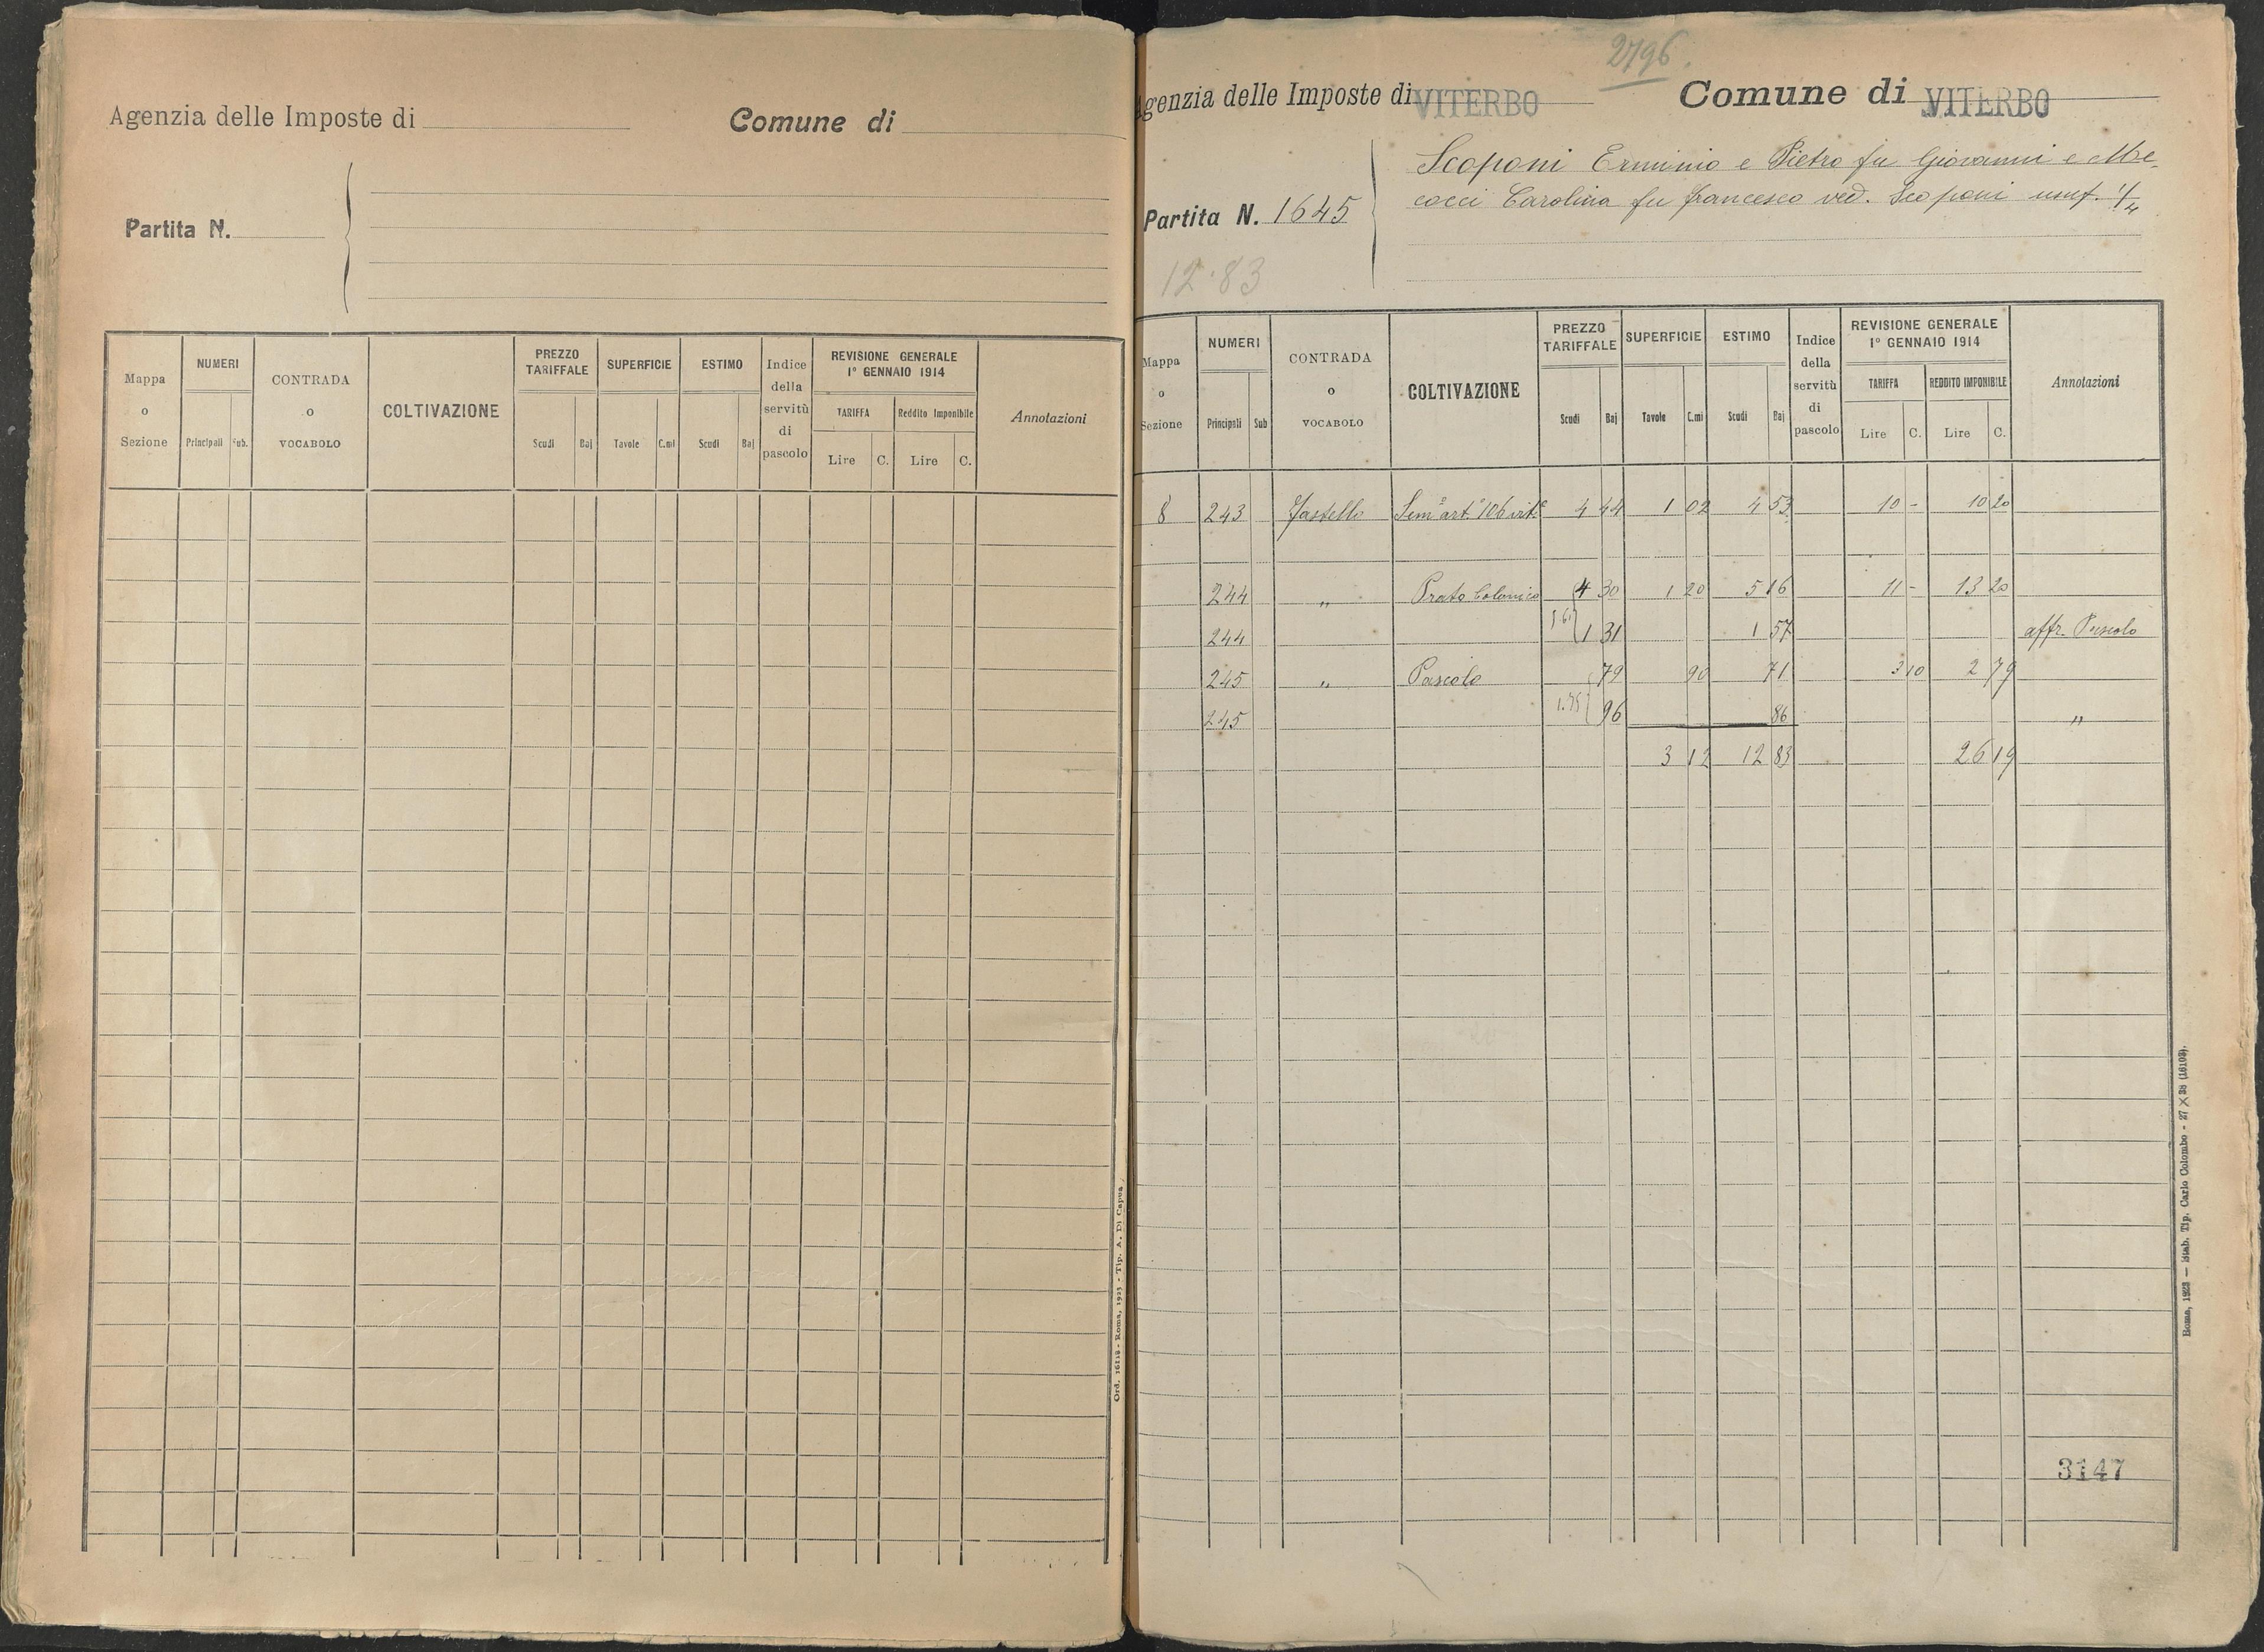 Agenzia delle Imposte di
Comune di
Partita N.
Mappa o Sezione
NUMERI
Principali
Sub.
CONTRADA o VOCABOLO
COLTIVAZIONE
PREZZO TARIFFALE
Scudi
Baj
SUPERFICIE
Tavole
C.mi
ESTIMO
Scudi
Baj
Indice della servitù di pascolo
REVISIONE GENERALE
1° GENNAIO 1914
TARIFFA
Lire
C.
Reddito Imponibile
Lire
C.
Annotazioni
Ord. 16118 - Roma, 1923 - Tip. A. Di Capua
2796
Agenzia delle Imposte di VITERBO
Comune di VITERBO
Scoponi Erminio e Pietro fu Giovanni e Me
cocci Carolina fu Francesco ved. Scoponi usuf. 1/4
Partita N. 1645
12.83
Mappa o Sezione
NUMERI
Principali
Sub
CONTRADA o VOCABOLO
COLTIVAZIONE
PREZZO TARIFFALE
Scudi
Baj
SUPERFICIE
Tavole
C.mi
ESTIMO
Scudi
Baj
Indice della servitù di pascolo
REVISIONE GENERALE
1° GENNAIO 1914
TARIFFA
Lire
C.
REDDITO IMPONIBILE
Lire
C.
Annotazioni
8 243 4 44 1 02 4 53 10 - 10 20
244 " Prato Colonico 4 30 1 20 5 16 11 - 13 20
244 1 31 1 57 affr. Pascolo
245 " Pascolo 79 90 71 3 10 2 79
245 1.75 96 86 "
3 12 12 83 26 19
3147
Roma, 1923 — Stab. Tip. Carlo Colombo - 27 X 38 (16103).